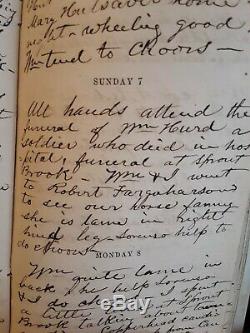 Mary Hulsaver home
night - wheeling good
Wm tend to Choors -
SUNDAY 7
All hands attend the
funeral of Wm Hurd a
soldier who died in hos
pital, funeral at Sprout
Brook - Wm & I went
to Robert Farquharson
to see our horse fanny
she is lame in right
hind leg - Lorenso help to
do choors
MONDAY 8
Wm quite lame in
back & she help Lorenso
& I do
a little Sprout
Brook talking about